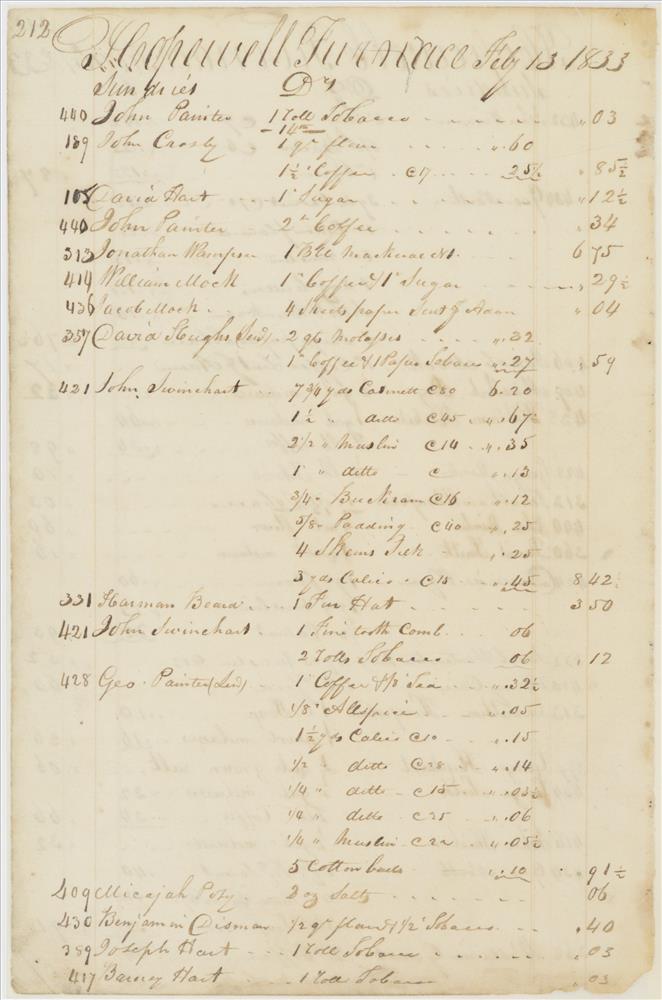 212 Hopewell Furnace Feb 13 1833
Sundries Drs
440 John Painter 1 roll Tobacco " 03
189 John Crosby 1 qr flour ".60
1½ " Coffee c17 25½ " 85½
108 David Hart 1 " Sugar " 12½
440 John Painter 2 " Coffee " 34
313 Jonathan Wampser 1 Bbl Mackerael 6 75
414 William Mock 1 " Coffee & 1 " Sugar " 29½
436 Jacob Mock 4 Sheets paper Sent Adam " 04
357 David Hughs 2 qts Molasses ".32
1 " Coffee & 1 Paper Tobacco ".27 " 59
421 John Swinehart 7 3/4 yds Casinett c80 6.20
1½ " ditto c45 ".67½
2½ " Muslin c14 ".35
1 " " ditto c ".13
3/4 " Buckram c16 ".12
5/8 " Padding c40 ".25
4 Skeins Silk ".25
3 yds Calico c15 ".45 8 42½
331 Harman Beard 1 Fur Hat 3 50
421 John Swinehart 1 Fine tooth Comb 06
2 rolls Tobacco 06 " 12
428 Geo. Painter 1 " Coffee & 1/8 " Tea ".32½
1/8 " Allspice ".05
1½ yds Calico c10 ".15
1/2 " ditto c28 ".14
1/4 " ditto c15 ".03½
1/4 " ditto c25 ".06
1/4 " Muslin c22 ".05½
5 Cotton balls ".10 91½
409 Micajah Posy 2 oz Salts 06
430 Benjamin Disman ½ qr flour & ½ " Tobacco " .40
389 Joseph Hart 1 roll Tobacco " 03
417 Barney Hart 1 roll Tobacco " 03